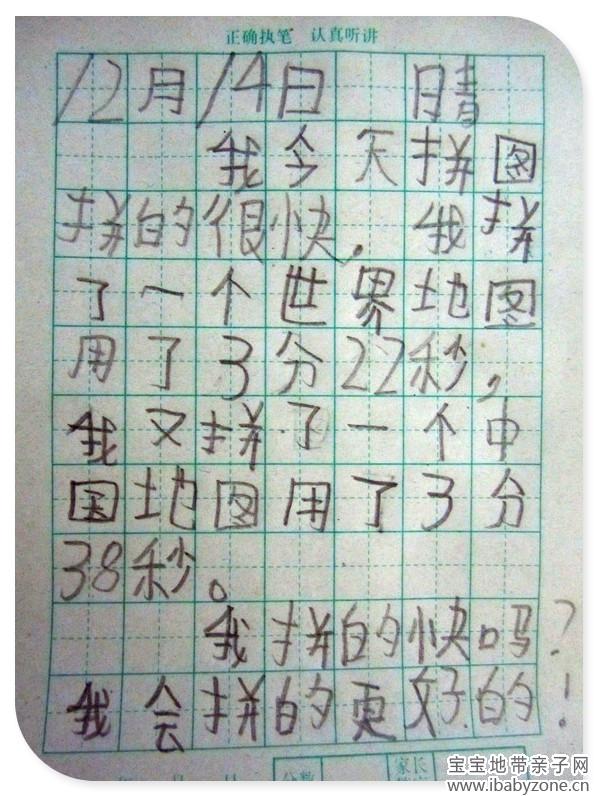 正确执笔 认真听讲
12月14日 晴
我今天拼图
拼的很快，我拼
了一个世界地图
用了3分22秒，
我又拼了一个中
国地图用了3分
38秒。
我拼的快吗？
我会拼的更好的！
年 月 日 分数 家长
宝宝地带亲子网
www.ibabyzone.cn